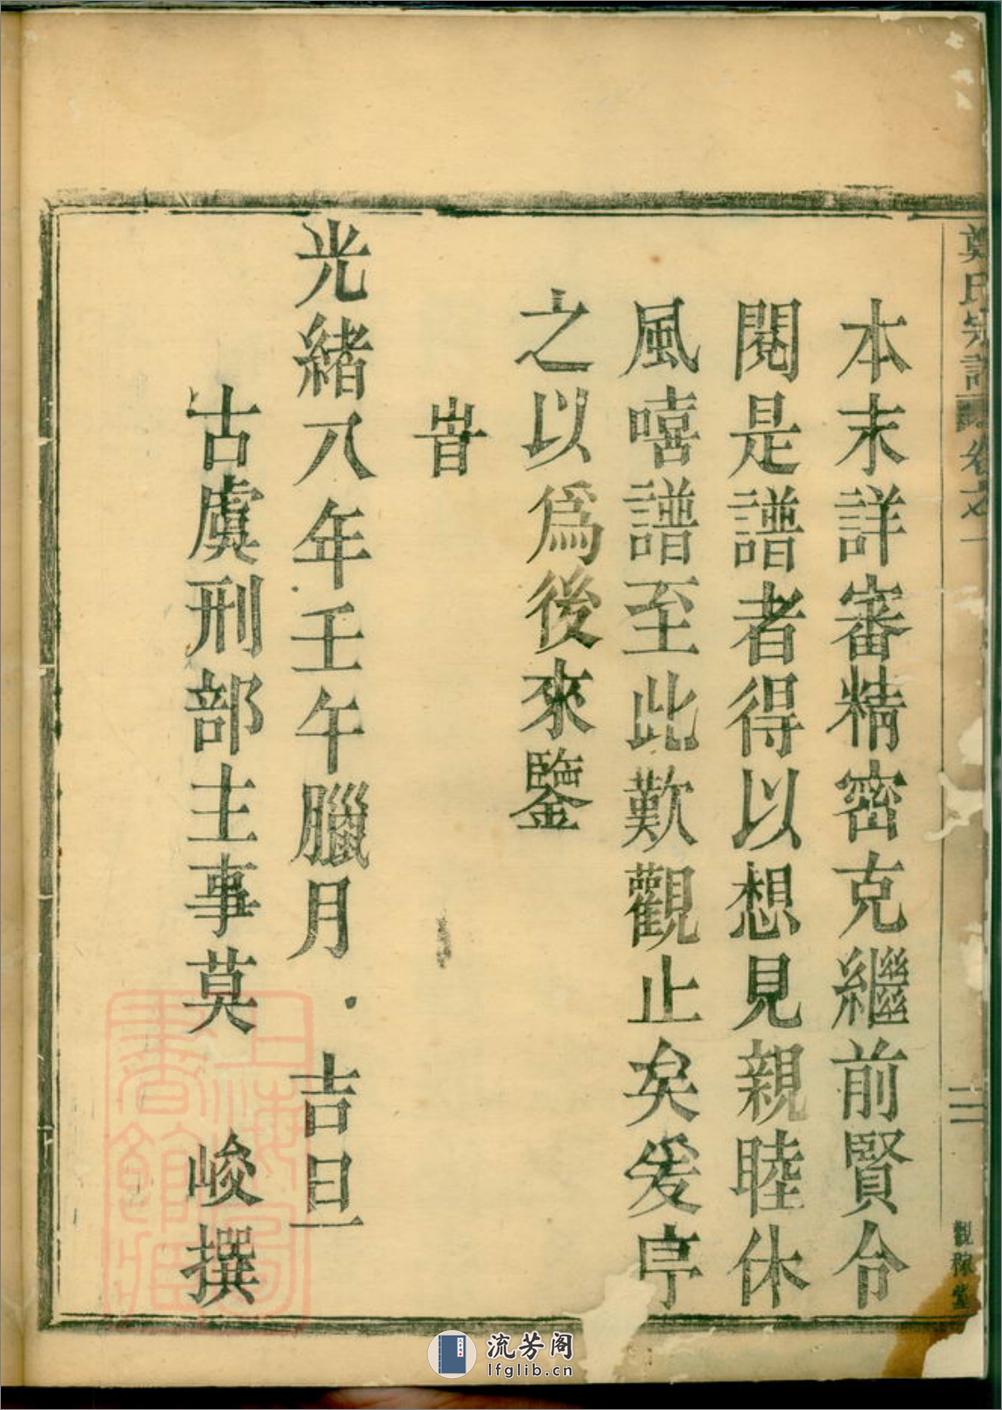 鄭氏宗譜 卷之一
二
觀稼堂
本末詳審精密克繼前賢令
閱是譜者得以想見親睦休
風嘻譜至此歎觀止矣爰序
之以爲後來鑒
旹
光緒八年壬午臘月・吉旦
古虞刑部主事莫 峻撰
上海圖書館藏
流芳阁
lfglib.cn